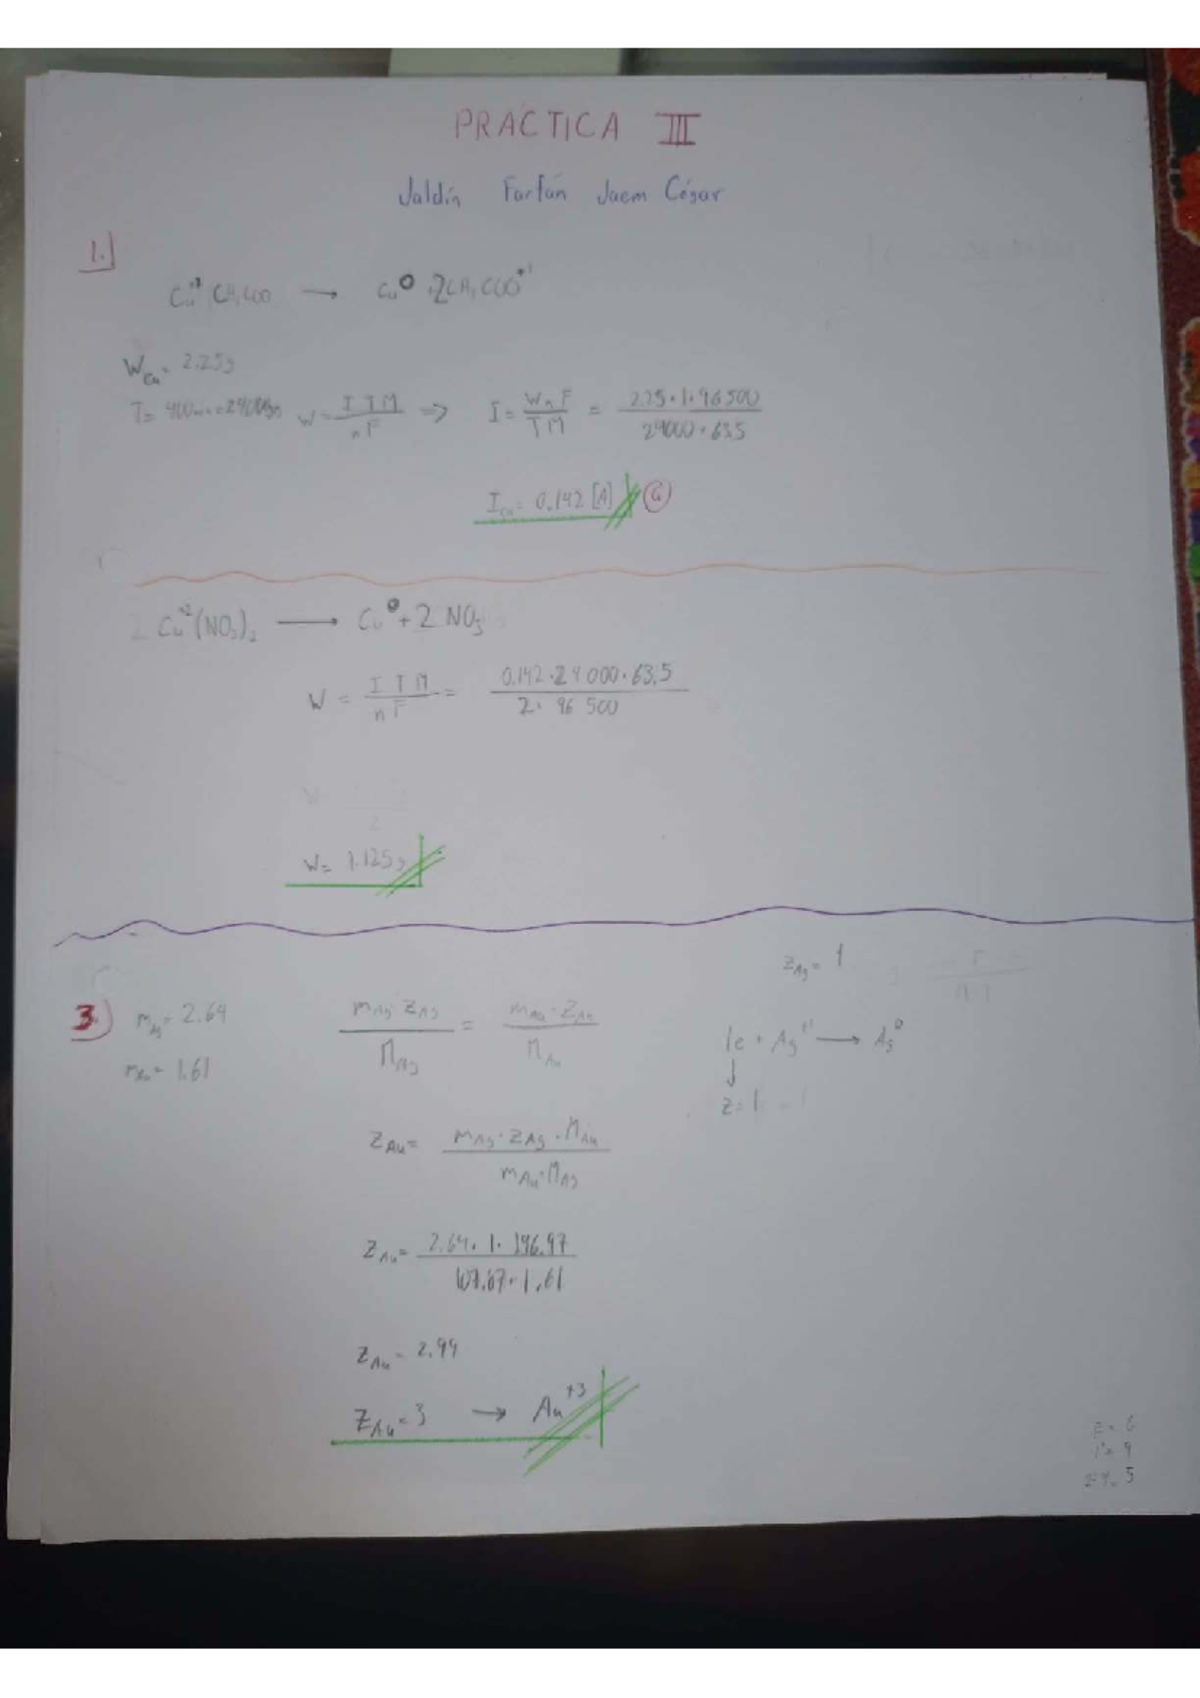 PRACTICA III
Jaldín Farfán Jaem César
1.)
Cu⁺¹ CH₃COO → Cu⁰ + 2CH₃COO⁺¹
W_Cu = 2.25g
T = 400min = 24000seg W = I T M / n F ⇒ I = W n F / T M = 2.25 · 1 · 96500 / 24000 · 63.5
I_Cu = 0.142 [A]
2 Cu⁺²(NO₃)₂ → Cu⁰ + 2 NO₃
W = I T M / n F = 0.142 · 24000 · 63.5 / 2 · 96 500
W = 1.125g
Z_Ag = 1
3.) m_Ag = 2.64 m_Ag · Z_Ag / M_Ag = m_Au · Z_Au / M_Au
1e + Ag⁺¹ → Ag⁰
m_Au = 1.61
↓
Z = 1
Z_Au = m_Ag · Z_Ag · M_Au / m_Au · M_Ag
Z_Au = 2.64 · 1 · 196.97 / 107.87 · 1.61
Z_Au = 2.99
Z_Au = 3 → Au⁺³